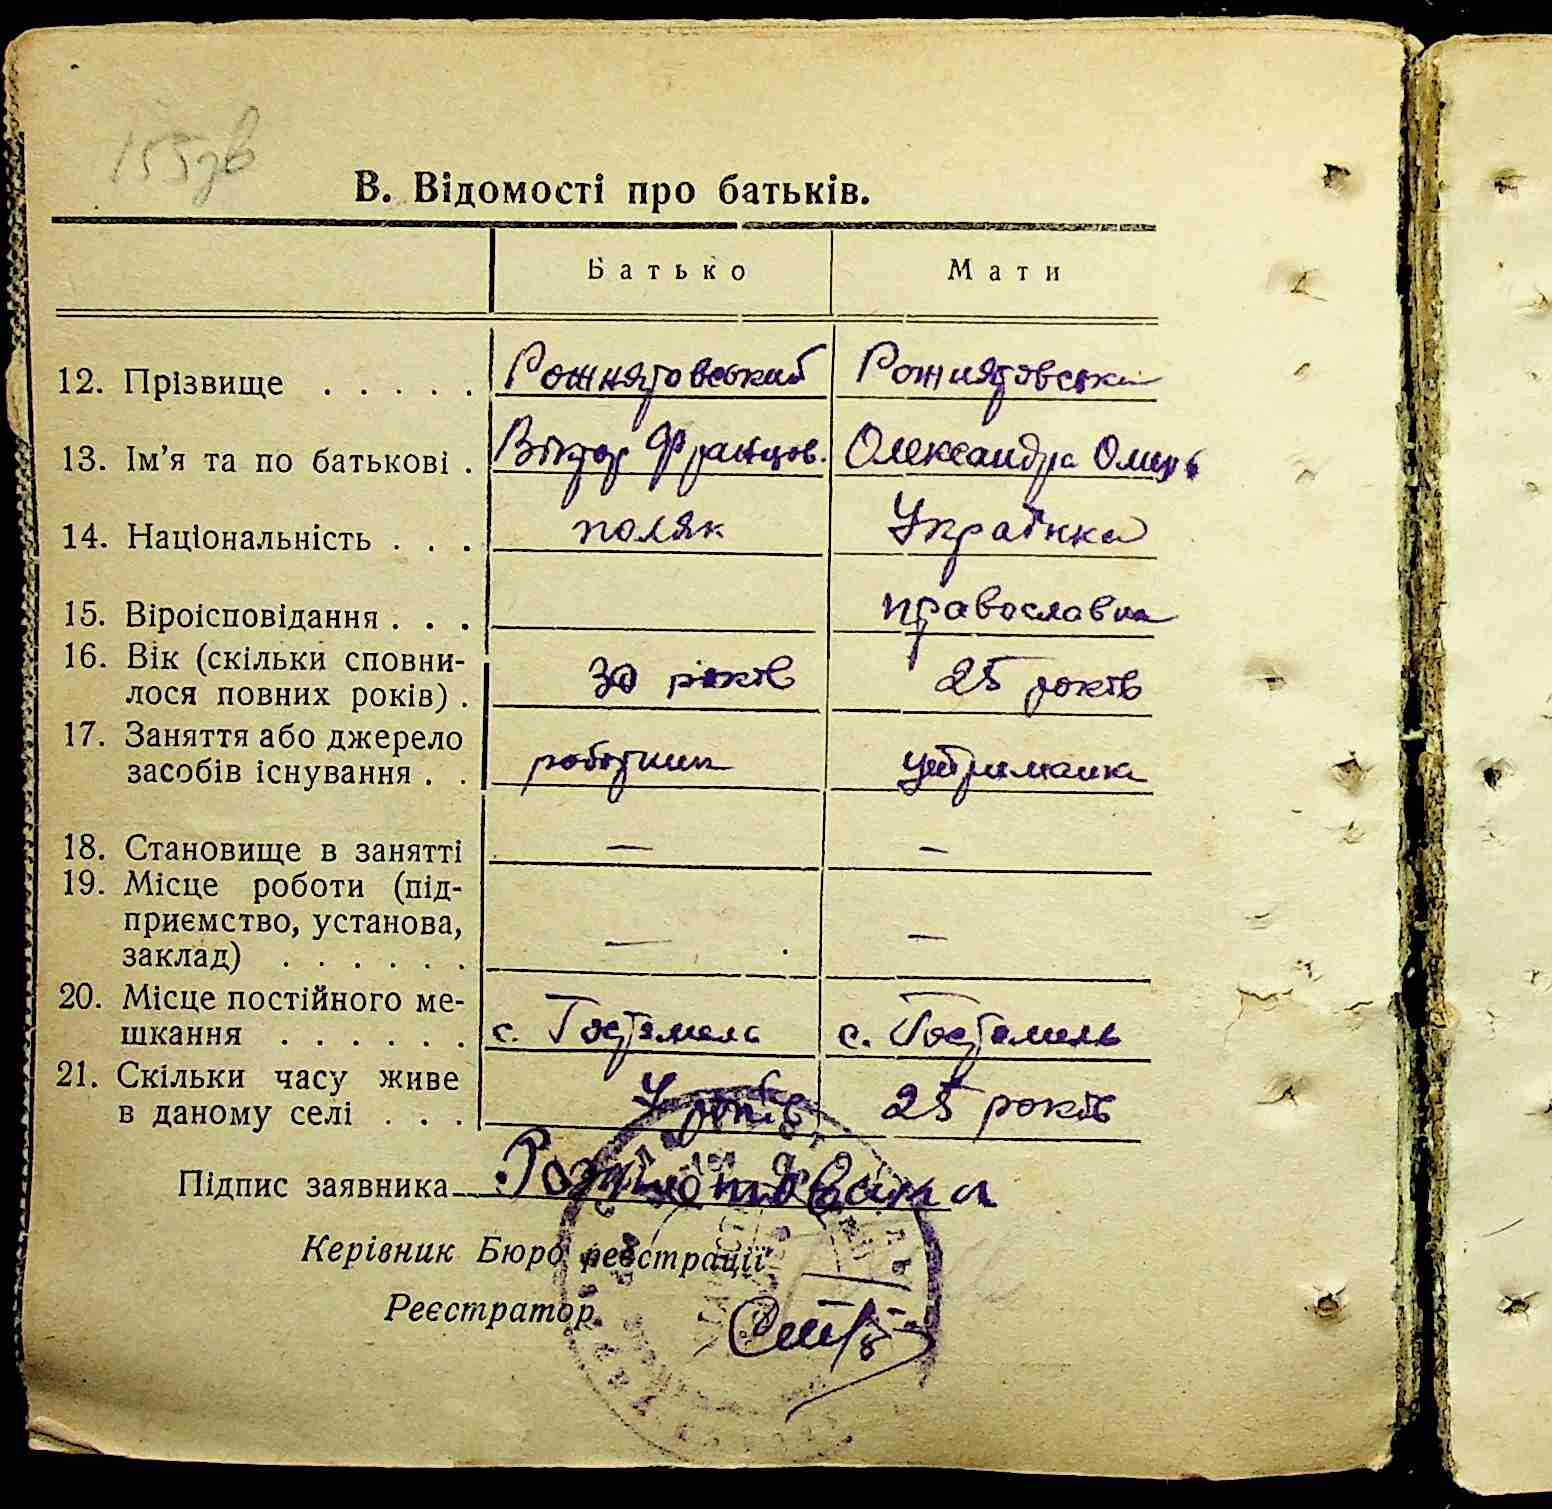 155зв
В. Відомості про батьків.
Батько Мати
12. Прізвище . . . . . Рожнятовський Рожнятовська
13. Ім'я та по батькові . Віктор Францов. Олександра
14. Національність . . . поляк Українка
15. Віроісповідання . . . православна
16. Вік (скільки сповни-
лося повних років) . 30 років 25 років
17. Заняття або джерело
засобів існування . . робочий утриманка
18. Становище в занятті — —
19. Місце роботи (під-
приємство, установа,
заклад) . . . . . . — —
20. Місце постійного ме-
шкання . . . . . . с. Гостомель с. Гостомель
21. Скільки часу живе
в даному селі . . . років 25 років
Підпис заявника
Керівник Бюро реєстрації
Реєстратор